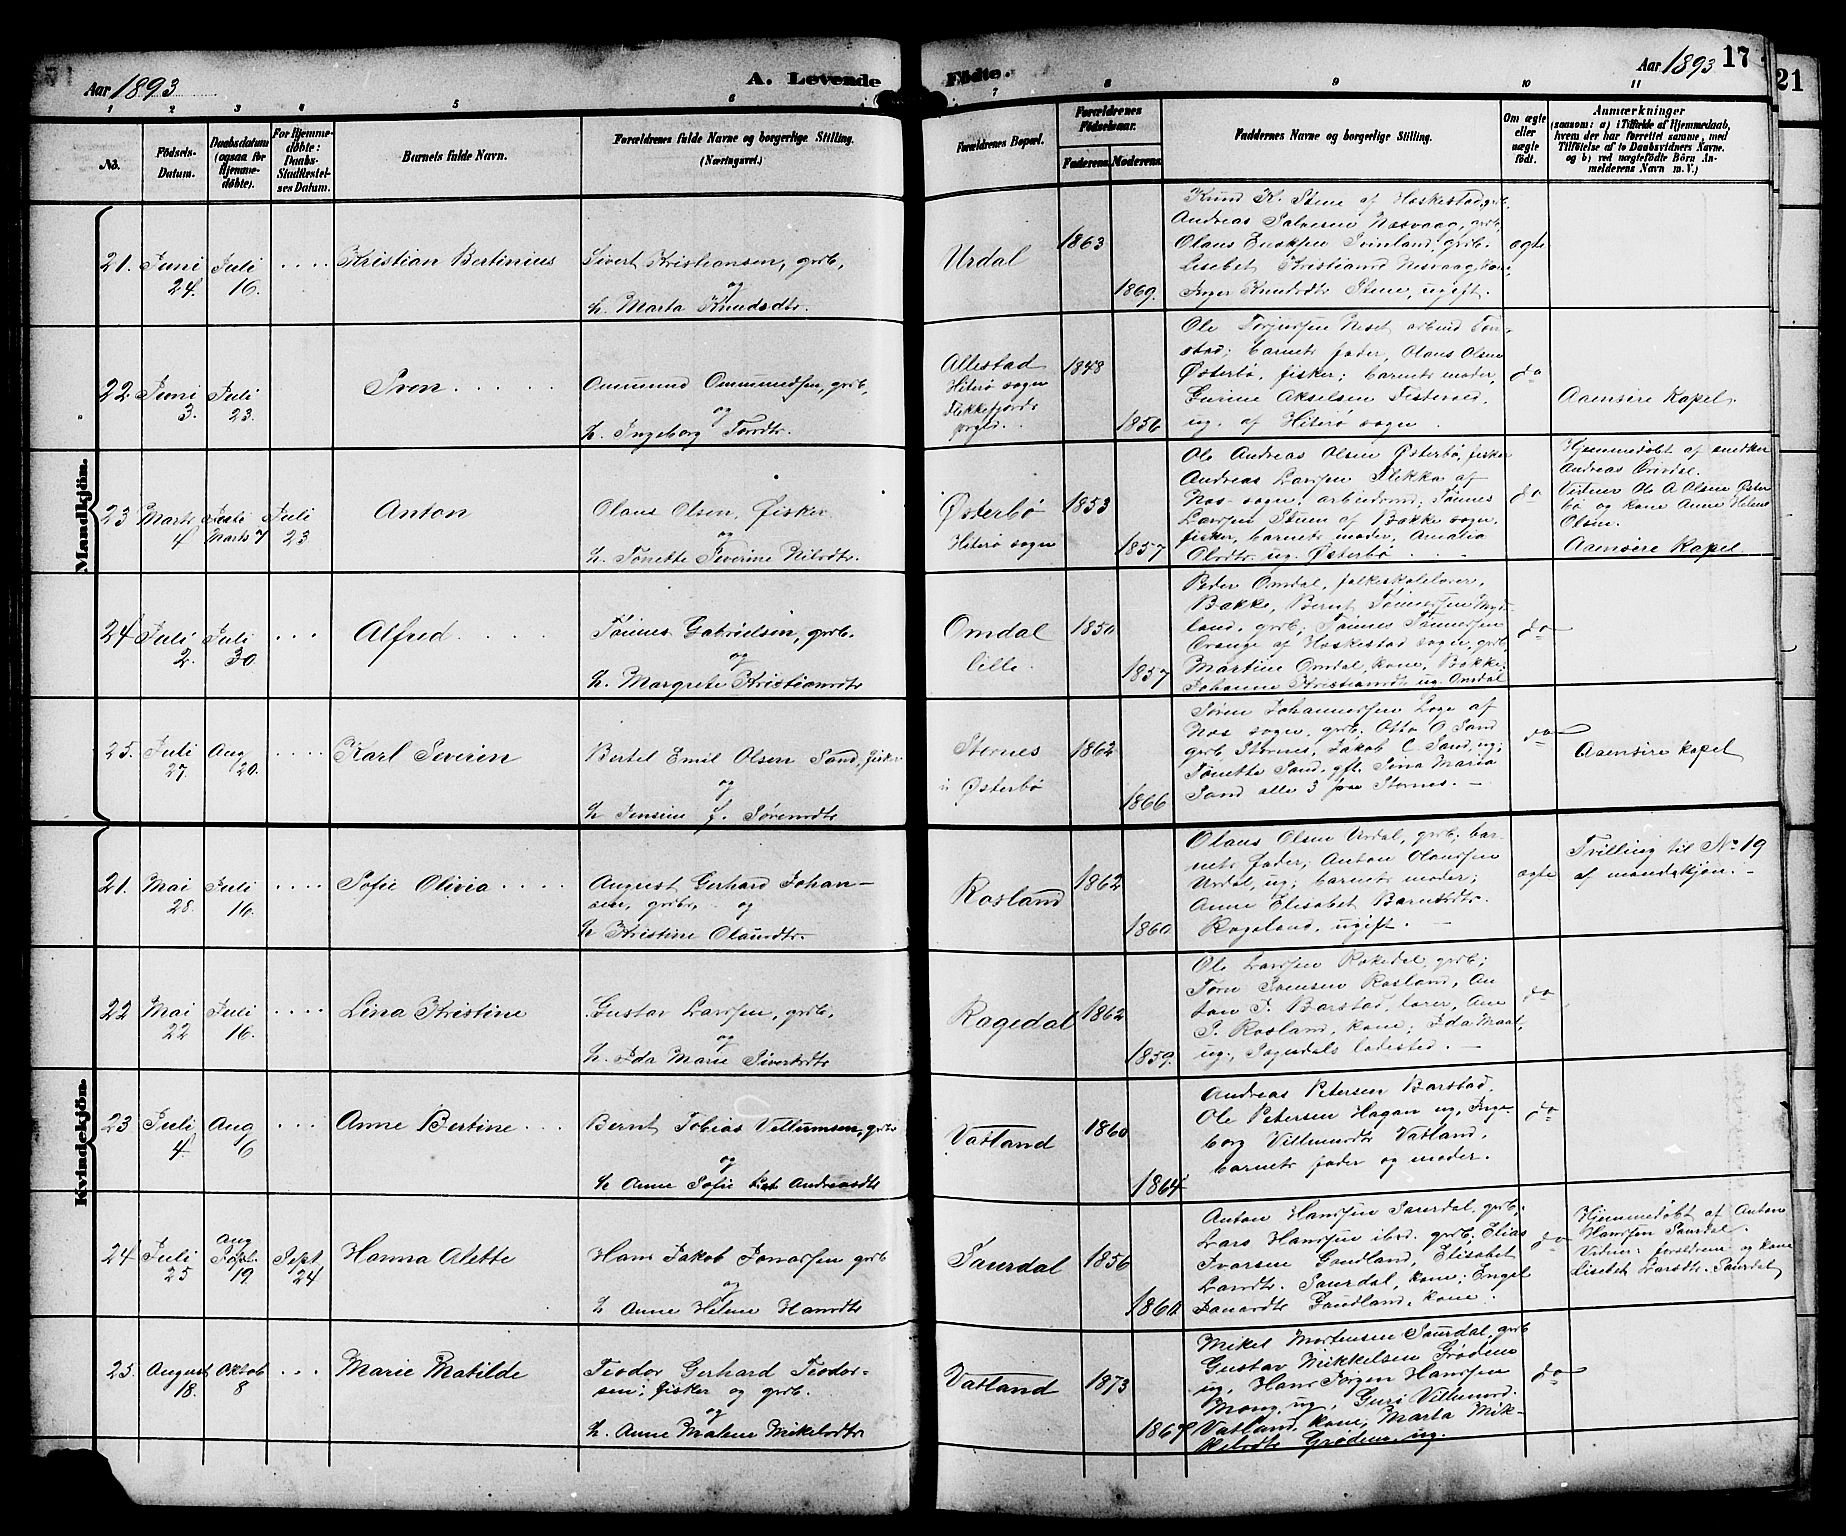 Aar 1893
A. Levende
Fødte.
Aar 1893
17
21
1 2 3 4 5 6 7 8 9 10 11
No.
Fødsels-
Datum.
Daabsdatum
(ogsaa for
Hjemme-
døbte).
For Hjemme-
døbte:
Daabs-
Stadfæstel-
ses Datum.
Barnets fulde Navn.
Forældrenes fulde Navne og borgerlige Stilling.
(Næringsvei.)
Forældrenes Bopæl.
Forældrenes
Fødselsaar.
Faderens. Moderens.
Faddernes Navne og borgerlige Stilling.
Om ægte
eller
uægte
født.
Anmærkninger
(saasom: a) i Tilfælde af Hjemmedaab,
hvem der har forrettet samme, med
Tilføielse af to Daabsvidners Navne.
og b) ved uægtefødte Börn An-
melderens Navn m. V.)
Mandkjön.
21. Juni
24. Juli
16.
Kristian Bertinius
Sivert Kristiansen, grdb,
og
h. Marta Knudsdtr.
Urdal
1863
1869.
Knud K. Stene af Heskestad, grdb.
Andreas Salvesen Nesvaag, grdb,
Olaus Svinland, grdb.
Lisebet Kristiansd Nesvaag, kone,
Inger Knudsdtr Stene, ugift.
ægte
22 Juni
3. Juli
23.
Sven
Ommund Ommundsen, grdb,
og
h. Ingeborg
Allestad
Hiterø sogn
Flekkefjords
prgld.
1848
1856
Ole Torjussen Neset arbeid
barnets fader, Olaus Olsen
Østerbø, fisker; barnets moder,
Gurine Akselsen
ug. af Hiterø sogn
do
Aamsire Kapel.
23 Marts
4 Marts 7 Juli
23
Anton
Olaus Olsen, Fisker
og
h. Tønette Severine Nilsdtr.
Østerbø
Hiterø sogn
1853
1857
Ole Andreas Olsen Østerbø, fisker
Andreas Larssen Flikka af
Nes sogn, arbeidsmd; Tønnes
Larssen Steen af Bakke sogn,
fisker, barnets moder, Amalia
Olsdtr ug. Østerbø
do
Hjemmedøbt af snedker
Andreas Omdal.
Vidner Ole A Olsen Øster
bø og kone Anne Helene
Olsen.
Aamsire Kapel
24 Juli
2. Juli
30.
Alfred
Tønnes Gabrielsen, grdb.
og
h. Margrete Kristiansdtr
Omdal
lille
1850
1857
Peder Omdal, folkeskolelærer,
Bakke, Bernt Tønnessen
land, grdb; Tønnes Tønnessen
af Heskestad sogn, grdb,
Martine Omdal, kone, Bakke;
Johanne Kristiansdtr ug. Omdal
do
25. Juli
27. Aug
20.
Karl Severin
Bertel Emil Olsen Sand, fisker
og
h Jensine J. Sørensdtr
Stornes
i Østerbø
1862
1866
Søren Johannessen Loge af
Nes sogn, grdb; Otto O Sand
grdb Stornes, Jakob C. Sand, ug;
Tønette Sand, gft. Sina Maria
Sand alle 3 paa Stornes.
do
Aamsire kapel
Kvindekjön.
21. Mai
28. Juli
16.
Sofie Olivia
August Gerhard Johan-
sen, grdbr, og
h Kristine Olausdtr.
Rosland
1862
1860
Olaus Olsen Urdal, grdb. bar-
nets fader; Anton Olaussen
Urdal, ug; barnets moder;
Anne Elisabet Barntsdtr.
Rogeland, ugift.
ægte
Tvilling til No 19
af mandskjøn.
22 Mai
22 Juli
16.
Lina Kristine
Gustav Larssen, grdb,
og
h. Ida Marie Sivertsdtr
Ragedal
1862
1859.
Ole Larssen Rakedal, grdb;
Tørn Svensen Rosland, An
ton J. Barstad, lærer, Ane
S. Rosland, kone; Ida
ug., Sogndals ladested.
do
23 Juli
4. Aug
6
Anne Bertine
Bernt Tobias Villumsen, grdb
og
h Anne Sofie Andreasdtr
Vatland
1860
1864
Andreas Petersen Barstad,
Ole Petersen Hagan ug, Inge
borg Villumsdtr Vatland,
barnets fader og moder.
do
24 Juli
25 Aug
19 Sept
24
Hanna Alette
Hans Jakob Jonassen grdb
og
h Anne Helene Hansdtr
Saurdal
1856
1860
Anton Hanssen Saurdal, grdb;
Lars Hanssen ibid. grdb; Elias
Ivarsen Gaudland, Elisabet
Larsdtr. Saurdal, kone; Engel
Jonasdtr Gaudland, kone
do
Hjemmedøbt af Anton
Hanssen Saurdal.
Vidner: forældrene og kone
Lisebet Larsdtr. Saurdal
25. August
18. Oktob
8
Marie Matilde
Teodor Gerhard Teodor-
sen; fisker og grdb.
og
h. Anne Malene Mikelsdtr
Vatland
1873
1869
Mikel Mortensen Saurdal, grdb
Gustav Mikkelsen Grødem
ug, Hans Jørgen Hanssen
Mong, ug, Guri Villumsd.
Vatland, kone, Marta Mik-
kelsdtr Grødem, ug.
do